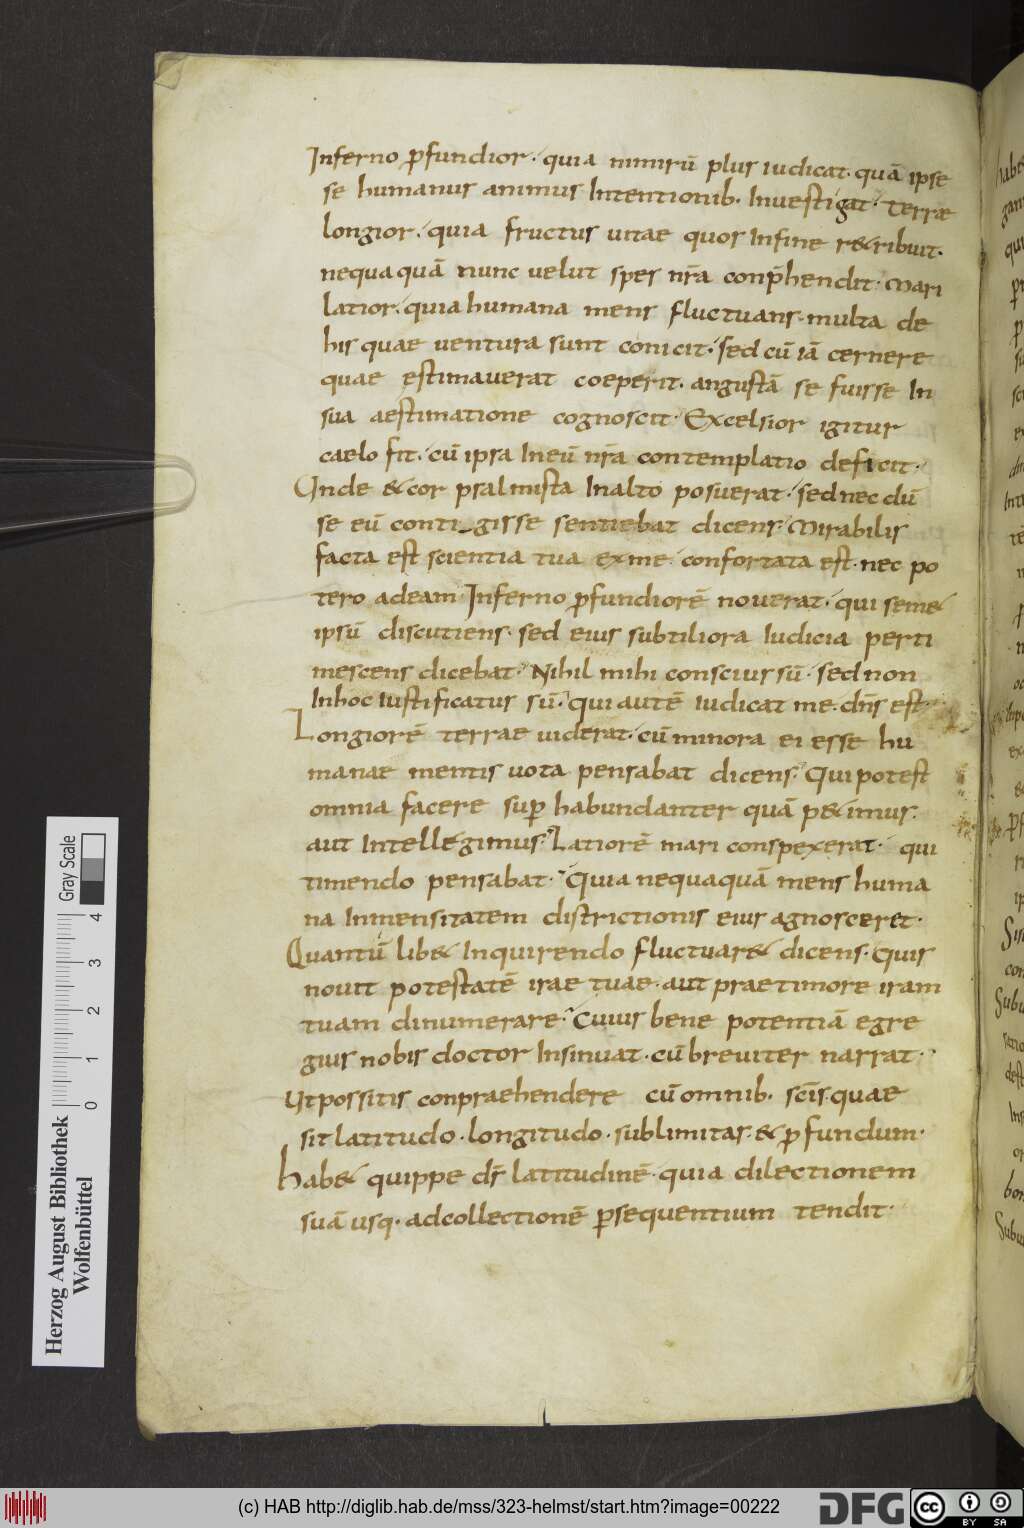 Inferno ꝓfundior. quia nimirū plus iudicat. quā ipse
se humanus animus Intentionib. Inuestigat. Terrae
longior. quia fructus uitae quos Infine r&ribuit.
nequaquā nunc uelut spes nr̄a conp̄hendit. Mari
latior. quia humana mens fluctuans. multa de
his quae uentura sunt conicit. sed cū iā cernere
quae estimauerat coeperit. angustā se fuisse In
sua aestimatione cognoscit. Excelsior igitur
caelo fit. cū ipsa Ineū nr̄a contemplatio deficit.
Unde & cor psalmista Inalto posuerat. sed nec dū
se eū contigisse sentiebat dicens. Mirabilis
facta est scientia tua exme. confortata est. nec po
tero adeam. Inferno ꝓfundiorē nouerat. qui sem&
ipsū discutiens. sed eius subtiliora Iudicia perti
mescens dicebat. Nihil mihi conscius sū. sed non
Inhoc iustificatus sū. qui autē iudicat me. dn̄s est.
Longiorē terrae uiderat. cū minora ei esse hu
manae mentis uota pensabat dicens. Qui potest
omnia facere suꝑ habundanter quā p&imus.
aut Intellegimus. Latiorē mari conspexerat. qui
timendo pensabat. Quia nequaquā mens huma
na Inmensitatem districtionis eius agnosceret.
Quantū lib& Inquirendo fluctuar& dicens. Quis
nouit potestatē irae tuae. aut prae timore iram
tuam dinumerare. Cuius bene potentiā egre
gius nobis doctor Insinuat. cū breuiter narrat.
Ut possitis conpraehendere cū omnib. sc̄is. quae
sit latitudo. longitudo. sublimitas. & ꝓfundum.
Hab& quippe ds̄ latitudinē. quia dilectionem
suā usq. ad collectionē ꝑsequentium tendit.
Herzog August Bibliothek
Wolfenbüttel
0 1 2 3 4
Gray Scale
(c) HAB http://diglib.hab.de/mss/323-helmst/start.htm?image=00222
DFG
cc BY SA